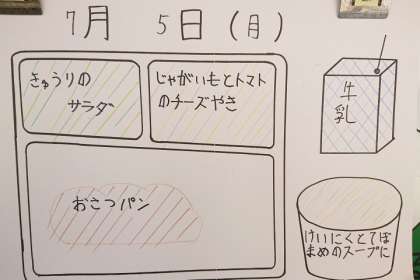 7月 5日(月)
きゅうりの
サラダ
じゃがいもとトマト
のチーズやき
牛
乳
おさつパン
けいにくとてぼ
まめのスープに